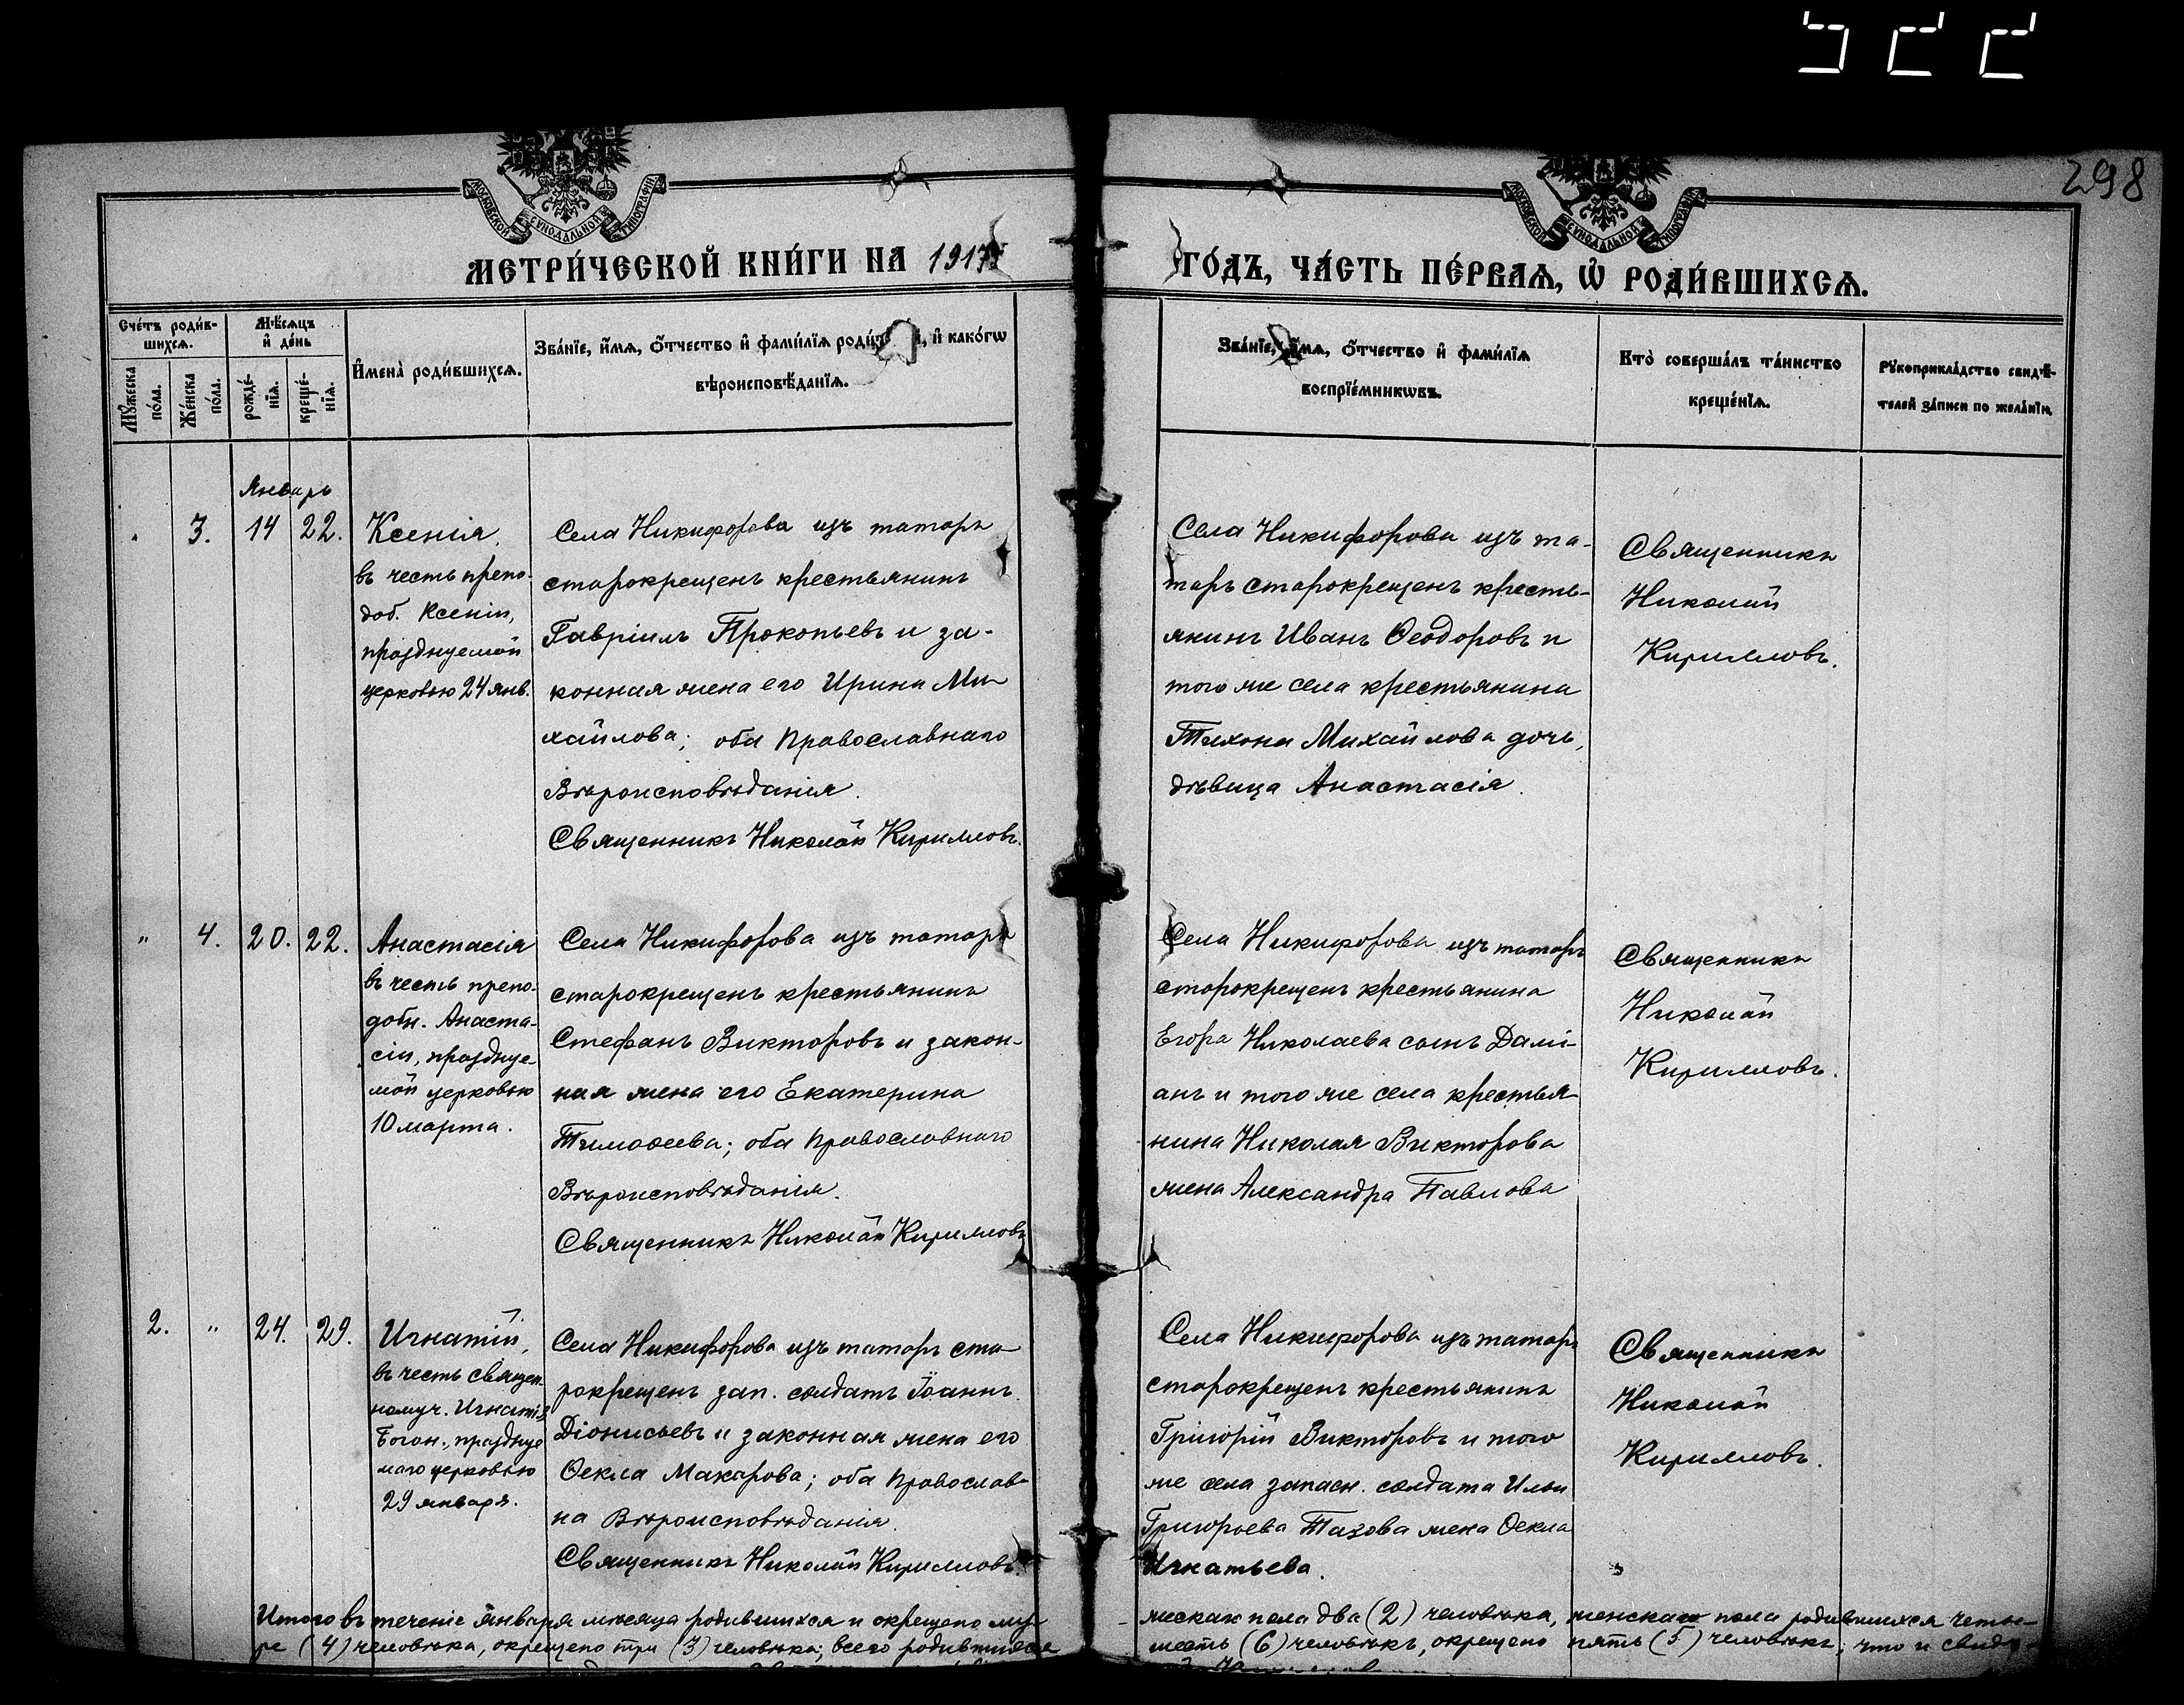 298
МОСКОВСКОЙ СѴНОДАЛЬНОЙ ТИПОГРАФІИ
МОСКОВСКОЙ СѴНОДАЛЬНОЙ ТИПОГРАФІИ
МЕТРИ́ЧЕСКОЙ КНИ́ГИ НА 1917
ГО́ДЪ, ЧА́СТЬ ПЕ́РВАѦ, Ѡ҆ РОДИ́ВШИХСѦ.
Сче́тъ роди́в-
шихсѧ.
Мѣ́сѧцъ
и҆ де́нь
Мꙋ́жеска
по́ла.
Же́нска
по́ла.
рожде́-
нїѧ.
креще́-
нїѧ.
И҆мена̀ роди́вшихсѧ.
Зва́нїе, и҆́мѧ, ѻ҆́тчество и҆ фамі́лїѧ роди́те й, и҆ како́гѡ
вѣроисповѣ́данїѧ.
Зва́нїе, и҆́мѧ, ѻ҆́тчество и҆ фамі́лїѧ
воспрїе́мникѡвъ.
Кто̀ соверша́лъ та́инство
креще́нїѧ.
Рꙋкоприкла́дство свидѣ́-
телей за́писи по жела́нїю.
Январь
" 3. 14 22.
Ксенія
въ честь препо-
доб. Ксеніи,
празднуемой
церковью 24 янв.
Села Никифорова изъ татаръ
старокрещенъ крестьянинъ
Гавріилъ Прокопьевъ и за-
конная жена его Ирина Ми-
хайлова; оба Православнаго
Вѣроисповѣданія.
Священникъ Николай Кирилловъ.
Села Никифорова изъ та-
таръ старокрещенъ кресть-
янинъ Иванъ Ѳеодоровъ и
того же села крестьянина
Тихона Михайлова дочь,
дѣвица Анастасія.
Священникъ
Николай
Кирилловъ.
" 4. 20. 22.
Анастасія
въ честь препо-
добн. Анаста-
сіи, празднуе-
мой церковью
10 марта.
Села Никифорова изъ татаръ
старокрещенъ крестьянинъ
Стефанъ Викторовъ и закон-
ная жена его Екатерина
Тимоѳеева; оба Православнаго
Вѣроисповѣданія.
Священникъ Николай Кирилловъ
Села Никифорова изъ татаръ
старокрещенъ крестьянина
Егора Николаева сынъ Дамі-
анъ и того же села крестья-
нина Николая Викторова
жена Александра Павлова
Священникъ
Николай
Кирилловъ.
2. " 24. 29.
Игнатій,
въ честь священ-
номуч. Игнатія
Богон., празднуе
маго церковью
29 января.
Села Никифорова изъ татаръ ста
рокрещенъ зап. солдатъ Іоаннъ
Діонисьевъ и законная жена его
Ѳекла Макарова; оба Православ-
на Вѣроисповѣданія.
Священникъ Николай Кирилловъ.
Села Никифорова изъ татаръ
старокрещенъ крестьянинъ
Григорій Викторовъ и того
же села запасн. солдата Ильи
Григорьева Тазова жена Ѳекла
Игнатьева.
Священникъ
Николай
Кирилловъ.
Итого въ теченіе Января мѣсяца родившихся и окрещено муж-
ескаго пола два (2) человѣка, женскаго пола родившихся четы-
ре (4) человѣка, окрещено три (3) человѣка; всего родившихся
шесть (6) человѣкъ, окрещено пять (5) человѣкъ; что и свидѣ-